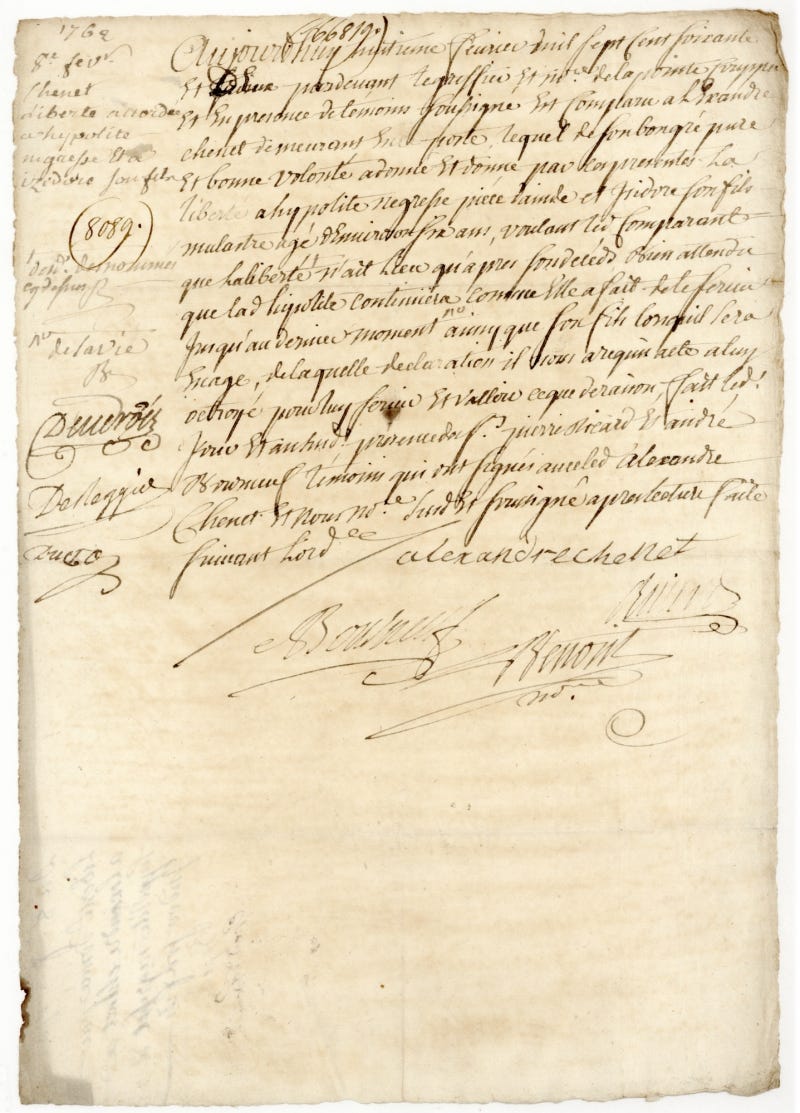 1762
8e fevr.
Chenet
liberté accordée
a hypolite
negresse et a
izodore son fils
(8089.
1
desd. denommes
cy dessus
no
de la vie
Derneville
De Reggio
Ducro
(66819.)
Aujourdhuy huitieme fevrier mil sept cent soixante
Et deux pardevant le greffier Et nore. de la pointe Coupée
Et En presence de temoins soussigné Est Comparu alexandre
chenet demeurant En poste, lequel de son bon gré pure
Et bonne volonté a donné Et donne par ces presentes La
liberté a hypolite negresse et Isidore son fils
mulastre agé d'Environ six ans, voulant led. Comparant
que la liberté n'ait lieu qu'apres son decéds Bien attendu
que lad hipolite continuera comme Elle a fait de le servir
Jusqu'au dernier moment no ainsy que son fils lorsquil sera
En age, de laquelle declaration il nous a requis acte a luy
octroyé pour luy servir Et valloir ce que de raison, fait led.
Jour Et an susd. presence des Srs. pierre Ricard Et andré
Bourneuf temoins qui ont signés avec led Alexandre
Chenet Et nous nore. susd Et soussigné apres lecture faite
suivant Lordce
alexandre chenet
ABourneuf
Ricard
Benoist
nore.